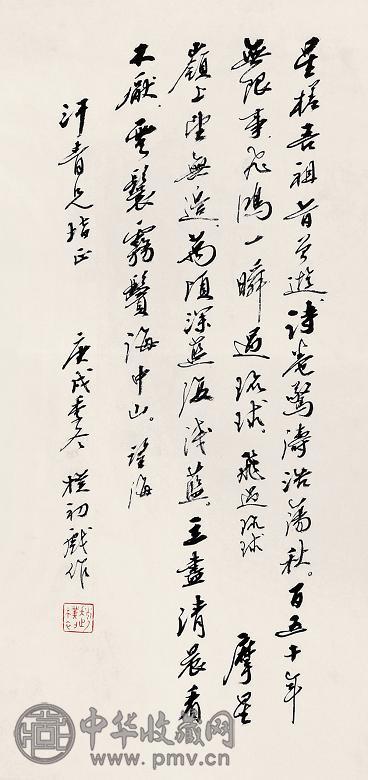 星槎吾祖昔曾遊。詩卷驚濤浩蕩秋。百五十年
無限事。飛鴻一瞬過琉球。飛過琉球 摩星
嶺上望無邊。萬頃深藍復淺藍。立盡清晨看
不厭。雲鬟霧鬢海中山。望海
汗青兄指正 庚戌季冬 樸初戲作
中华收藏网
www.pmv.cn